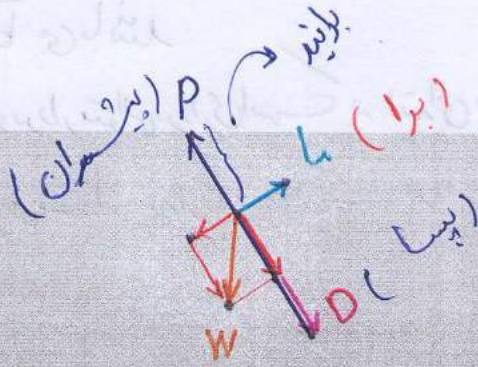 بدانید
P (پیشران)
L (برا)
D (پسا)
W